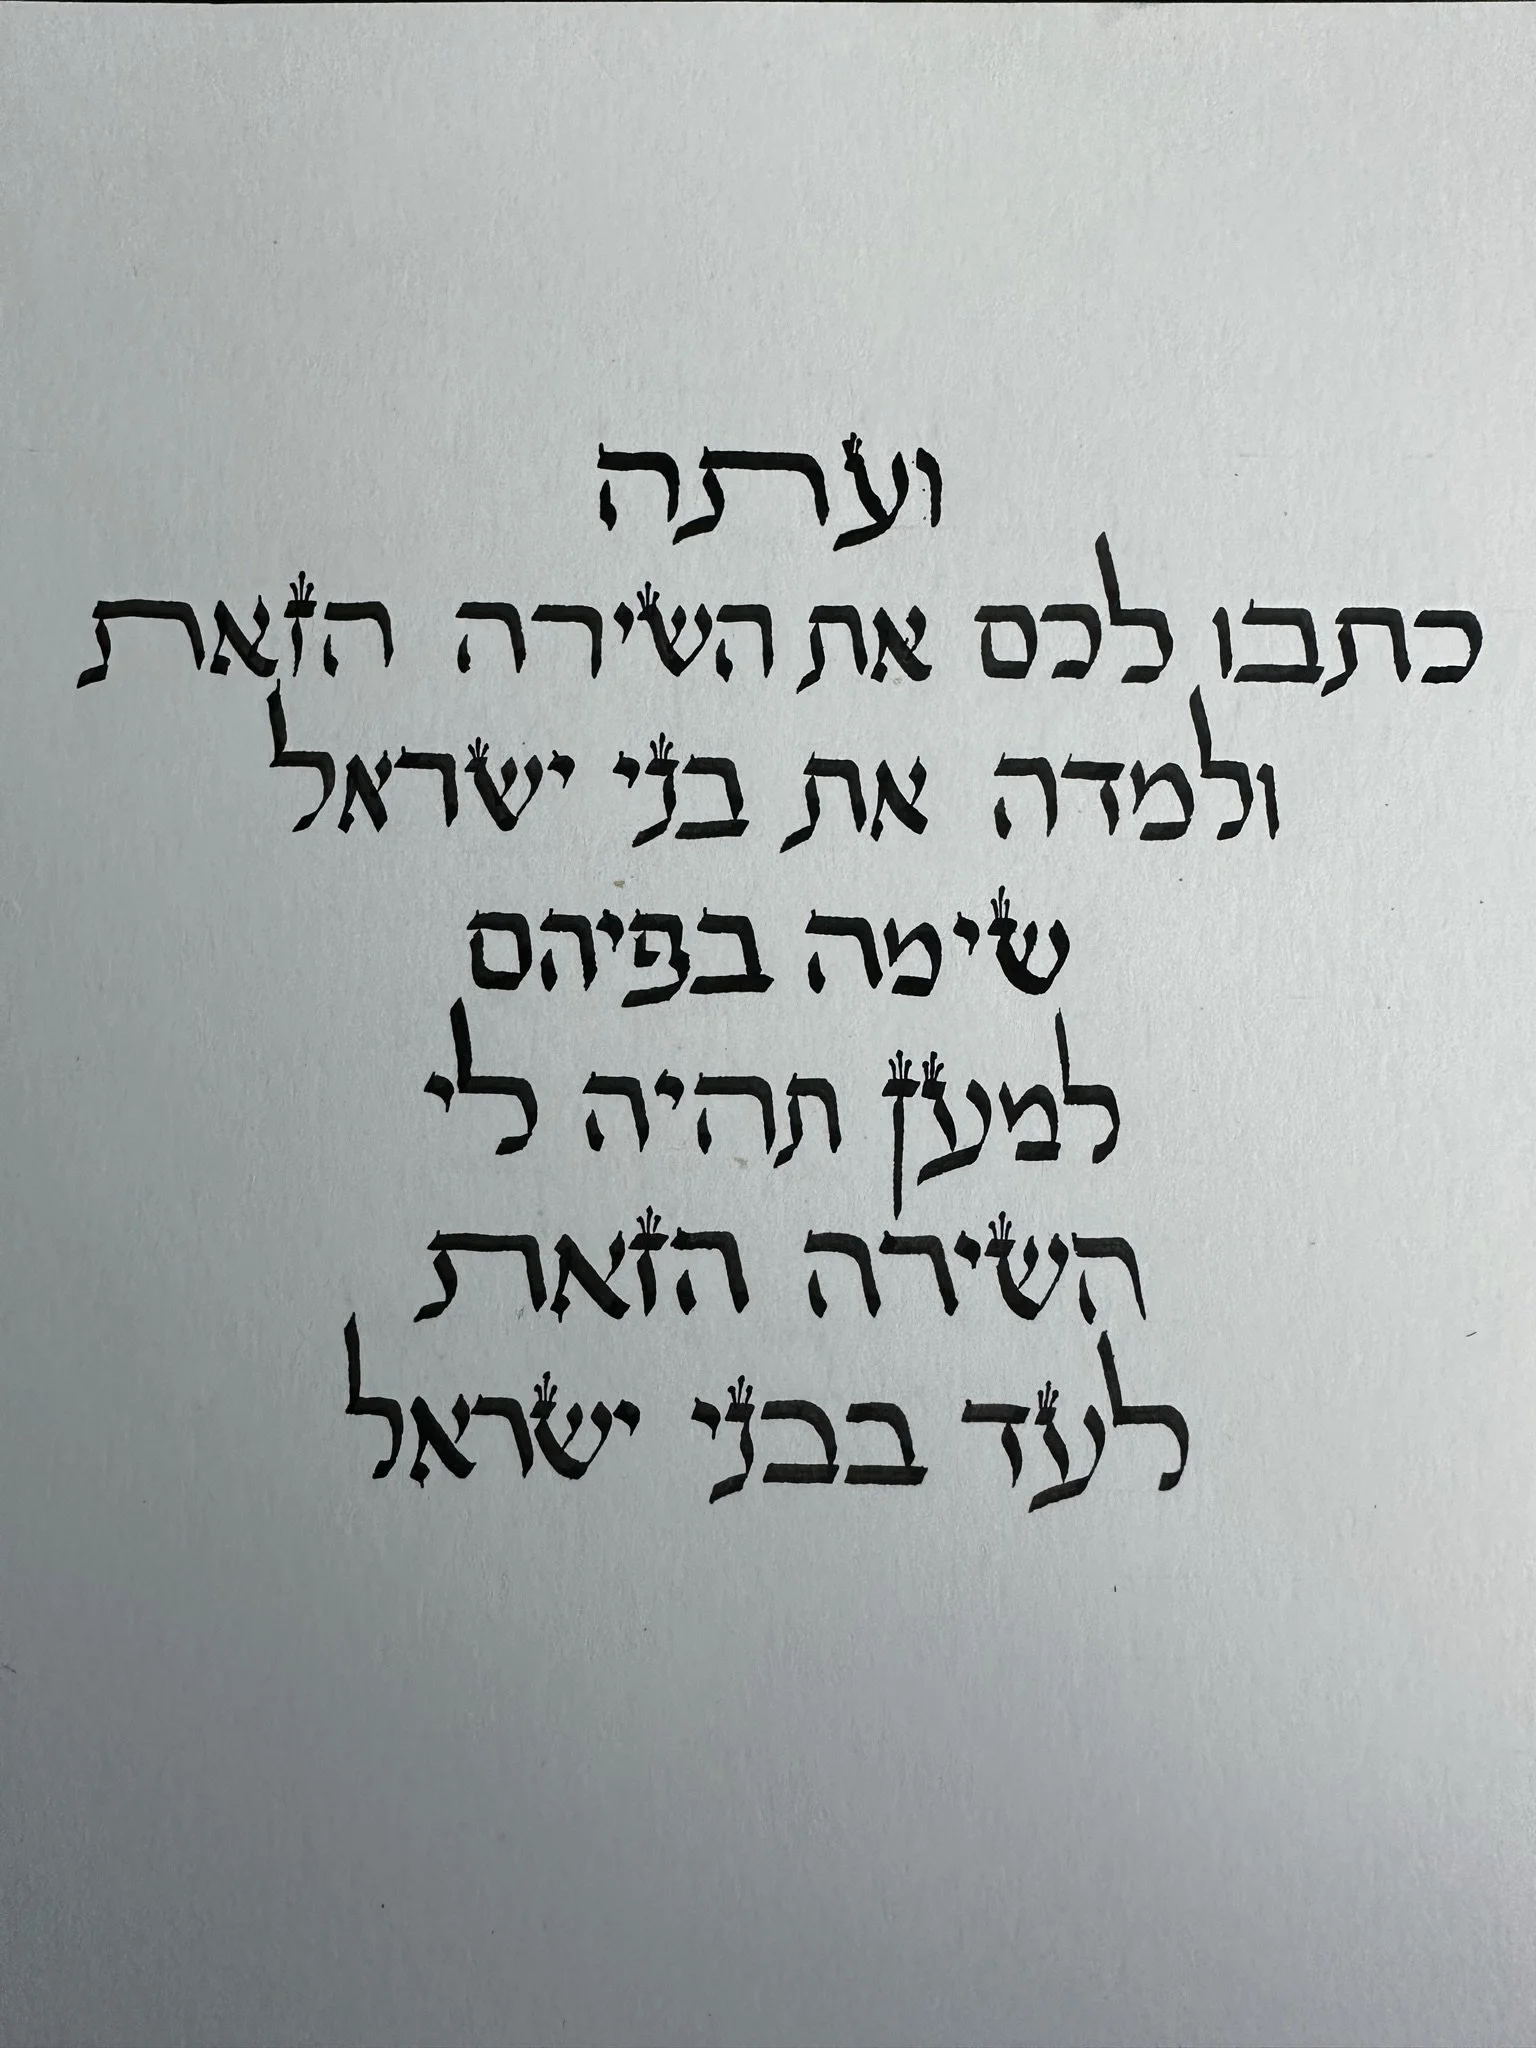 ועתה
כתבו לכם את השירה הזאת
ולמדה את בני ישראל
שימה בפיהם
למען תהיה לי
השירה הזאת
לעד בבני ישראל